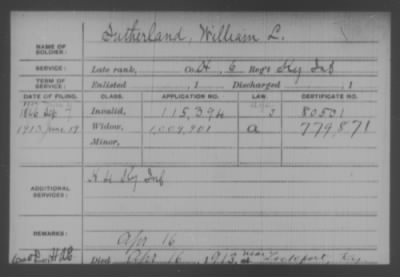 NAME OF SOLDIER: Sutherland, William L.
SERVICE: Late rank, Co. H, 6 Reg't Ky Inf
TERM OF SERVICE: Enlisted , 1 Discharged , 1
DATE OF FILING. CLASS. APPLICATION NO. LAW. CERTIFICATE NO.
1866 Sep 7 Invalid, 115,394 80501
1913 June 17 Widow, 1,009,901 a 779,871
Minor,
ADDITIONAL SERVICES: K 4 Ky Inf
REMARKS:
Apr 16
Died Apr 16, 1913, near Lockport, Ky